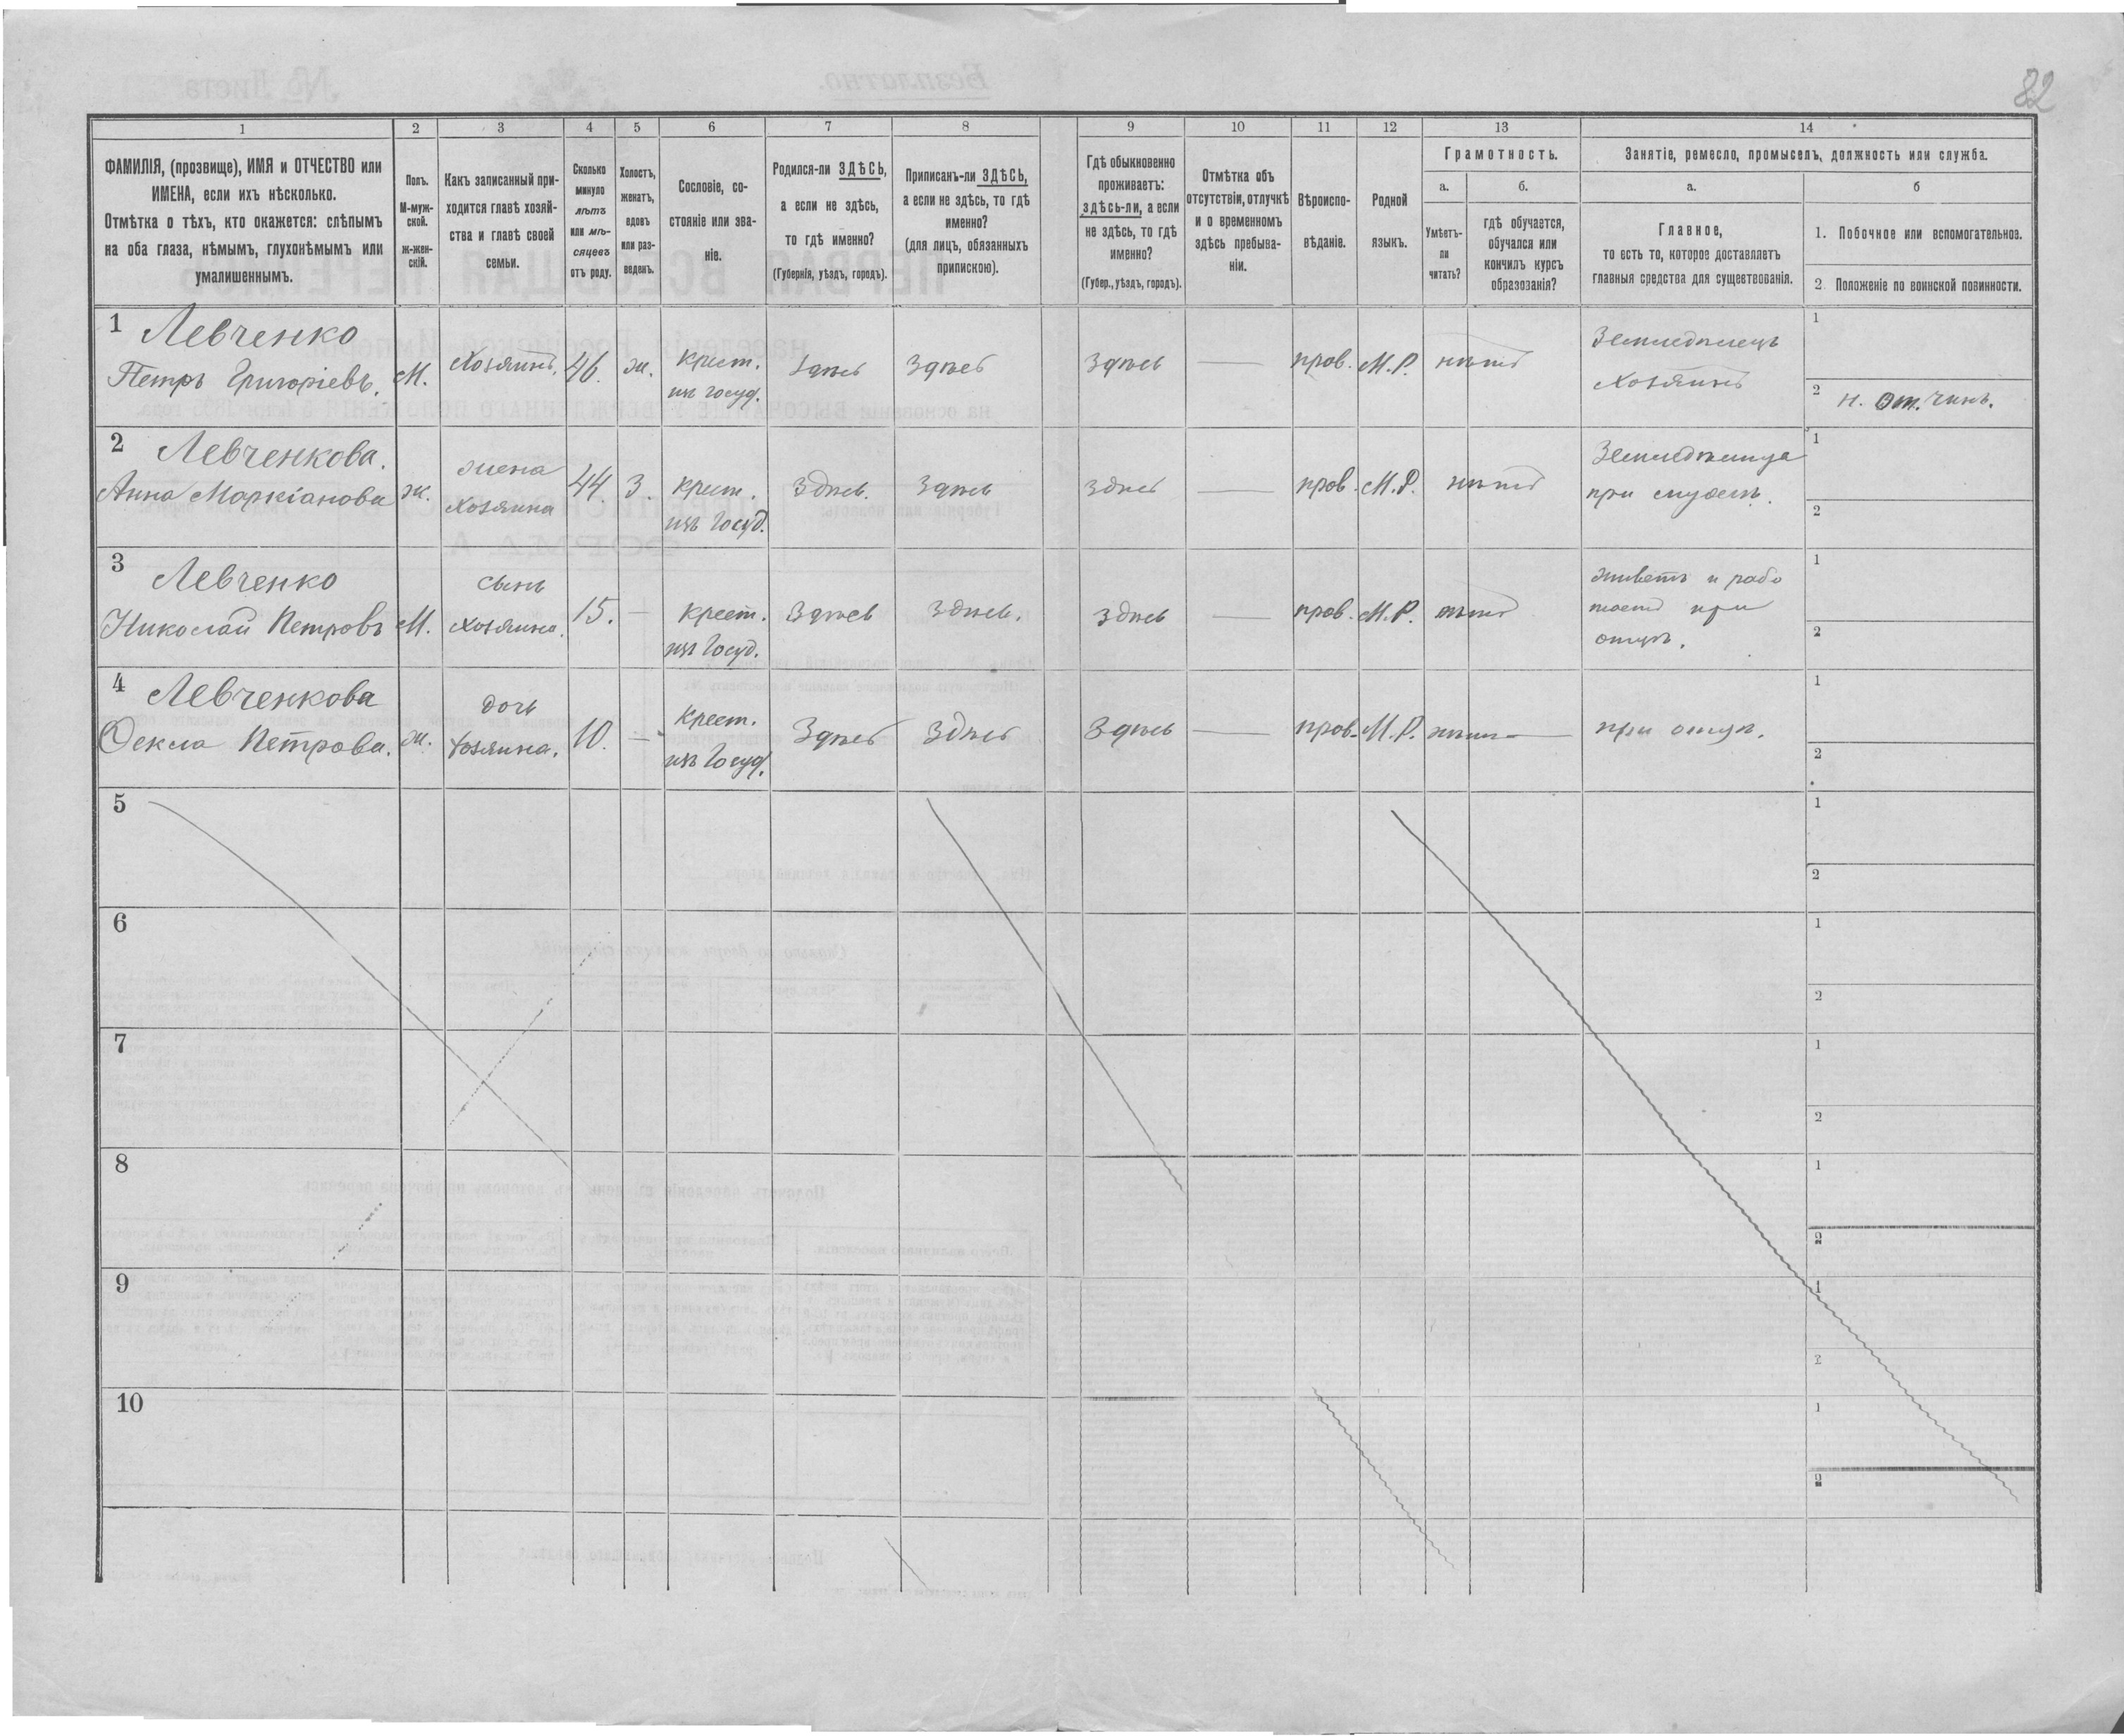 82
1
2
3
4
5
6
7
8
9
10
11
12
13
14
ФАМИЛІЯ, (прозвище), ИМЯ и ОТЧЕСТВО или
ИМЕНА, если ихъ нѣсколько.
Отмѣтка о тѣхъ, кто окажется: слѣпымъ
на оба глаза, нѣмымъ, глухонѣмымъ или
умалишеннымъ.
Полъ.
М-муж-
ской.
ж-жен-
скій.
Какъ записанный при-
ходится главѣ хозяй-
ства и главѣ своей
семьи.
Сколько
минуло
лѣтъ
или мѣ-
сяцевъ
отъ роду.
Холостъ,
женатъ,
вдовъ
или раз-
веденъ.
Сословіе, со-
стояніе или зва-
ніе.
Родился-ли ЗДѢСЬ,
а если не здѣсь,
то гдѣ именно?
(Губернія, уѣздъ, городъ).
Приписанъ-ли ЗДѢСЬ,
а если не здѣсь, то гдѣ
именно?
(для лицъ, обязанныхъ
припискою).
Гдѣ обыкновенно
проживаетъ:
здѣсь-ли, а если
не здѣсь, то гдѣ
именно?
(Губер., уѣздъ, городъ).
Отмѣтка объ
отсутствіи, отлучкѣ
и о временномъ
здѣсь пребыва-
ніи.
Вѣроиспо-
вѣданіе.
Родной
языкъ.
Грамотность.
а.
б.
Умѣетъ-
ли
читать?
гдѣ обучается,
обучался или
кончилъ курсъ
образованія?
Занятіе, ремесло, промыселъ, должность или служба.
а.
б
Главное,
то есть то, которое доставляетъ
главныя средства для существованія.
1. Побочное или вспомогательное.
2. Положеніе по воинской повинности.
1 Левченко
Петръ Григоріевъ.
М.
Хозяинъ.
46.
ж.
Крест.
изъ госуд.
Здѣсь
Здѣсь
Здѣсь
—
прав.
М.Р.
нѣтъ
Земледѣлецъ
Хозяинъ
1
2 н. от. чинъ.
2 Левченкова.
Анна Маркіанова
ж.
жена
Хозяина
44.
З.
Крест.
изъ Госуд.
Здѣсь.
Здѣсь
Здѣсь
—
прав.
М.Р.
нѣтъ
при мужѣ.
1
2
3 Левченко
Николай Петровъ
М.
сынъ
Хозяина.
15.
—
Крест.
изъ Госуд.
Здѣсь
Здѣсь.
Здѣсь
—
прав.
М.Р.
нѣтъ
живетъ и рабо
таетъ при
отцѣ.
1
2
4 Левченкова
Ѳекла Петрова.
ж.
дочь
Хозяина.
10.
—
Крест.
изъ Госуд.
Здѣсь
Здѣсь
Здѣсь
—
прав.
М.Р.
нѣтъ —
при отцѣ.
1
2
5
1
2
6
1
2
7
1
2
8
1
2
9
1
2
10
1
2